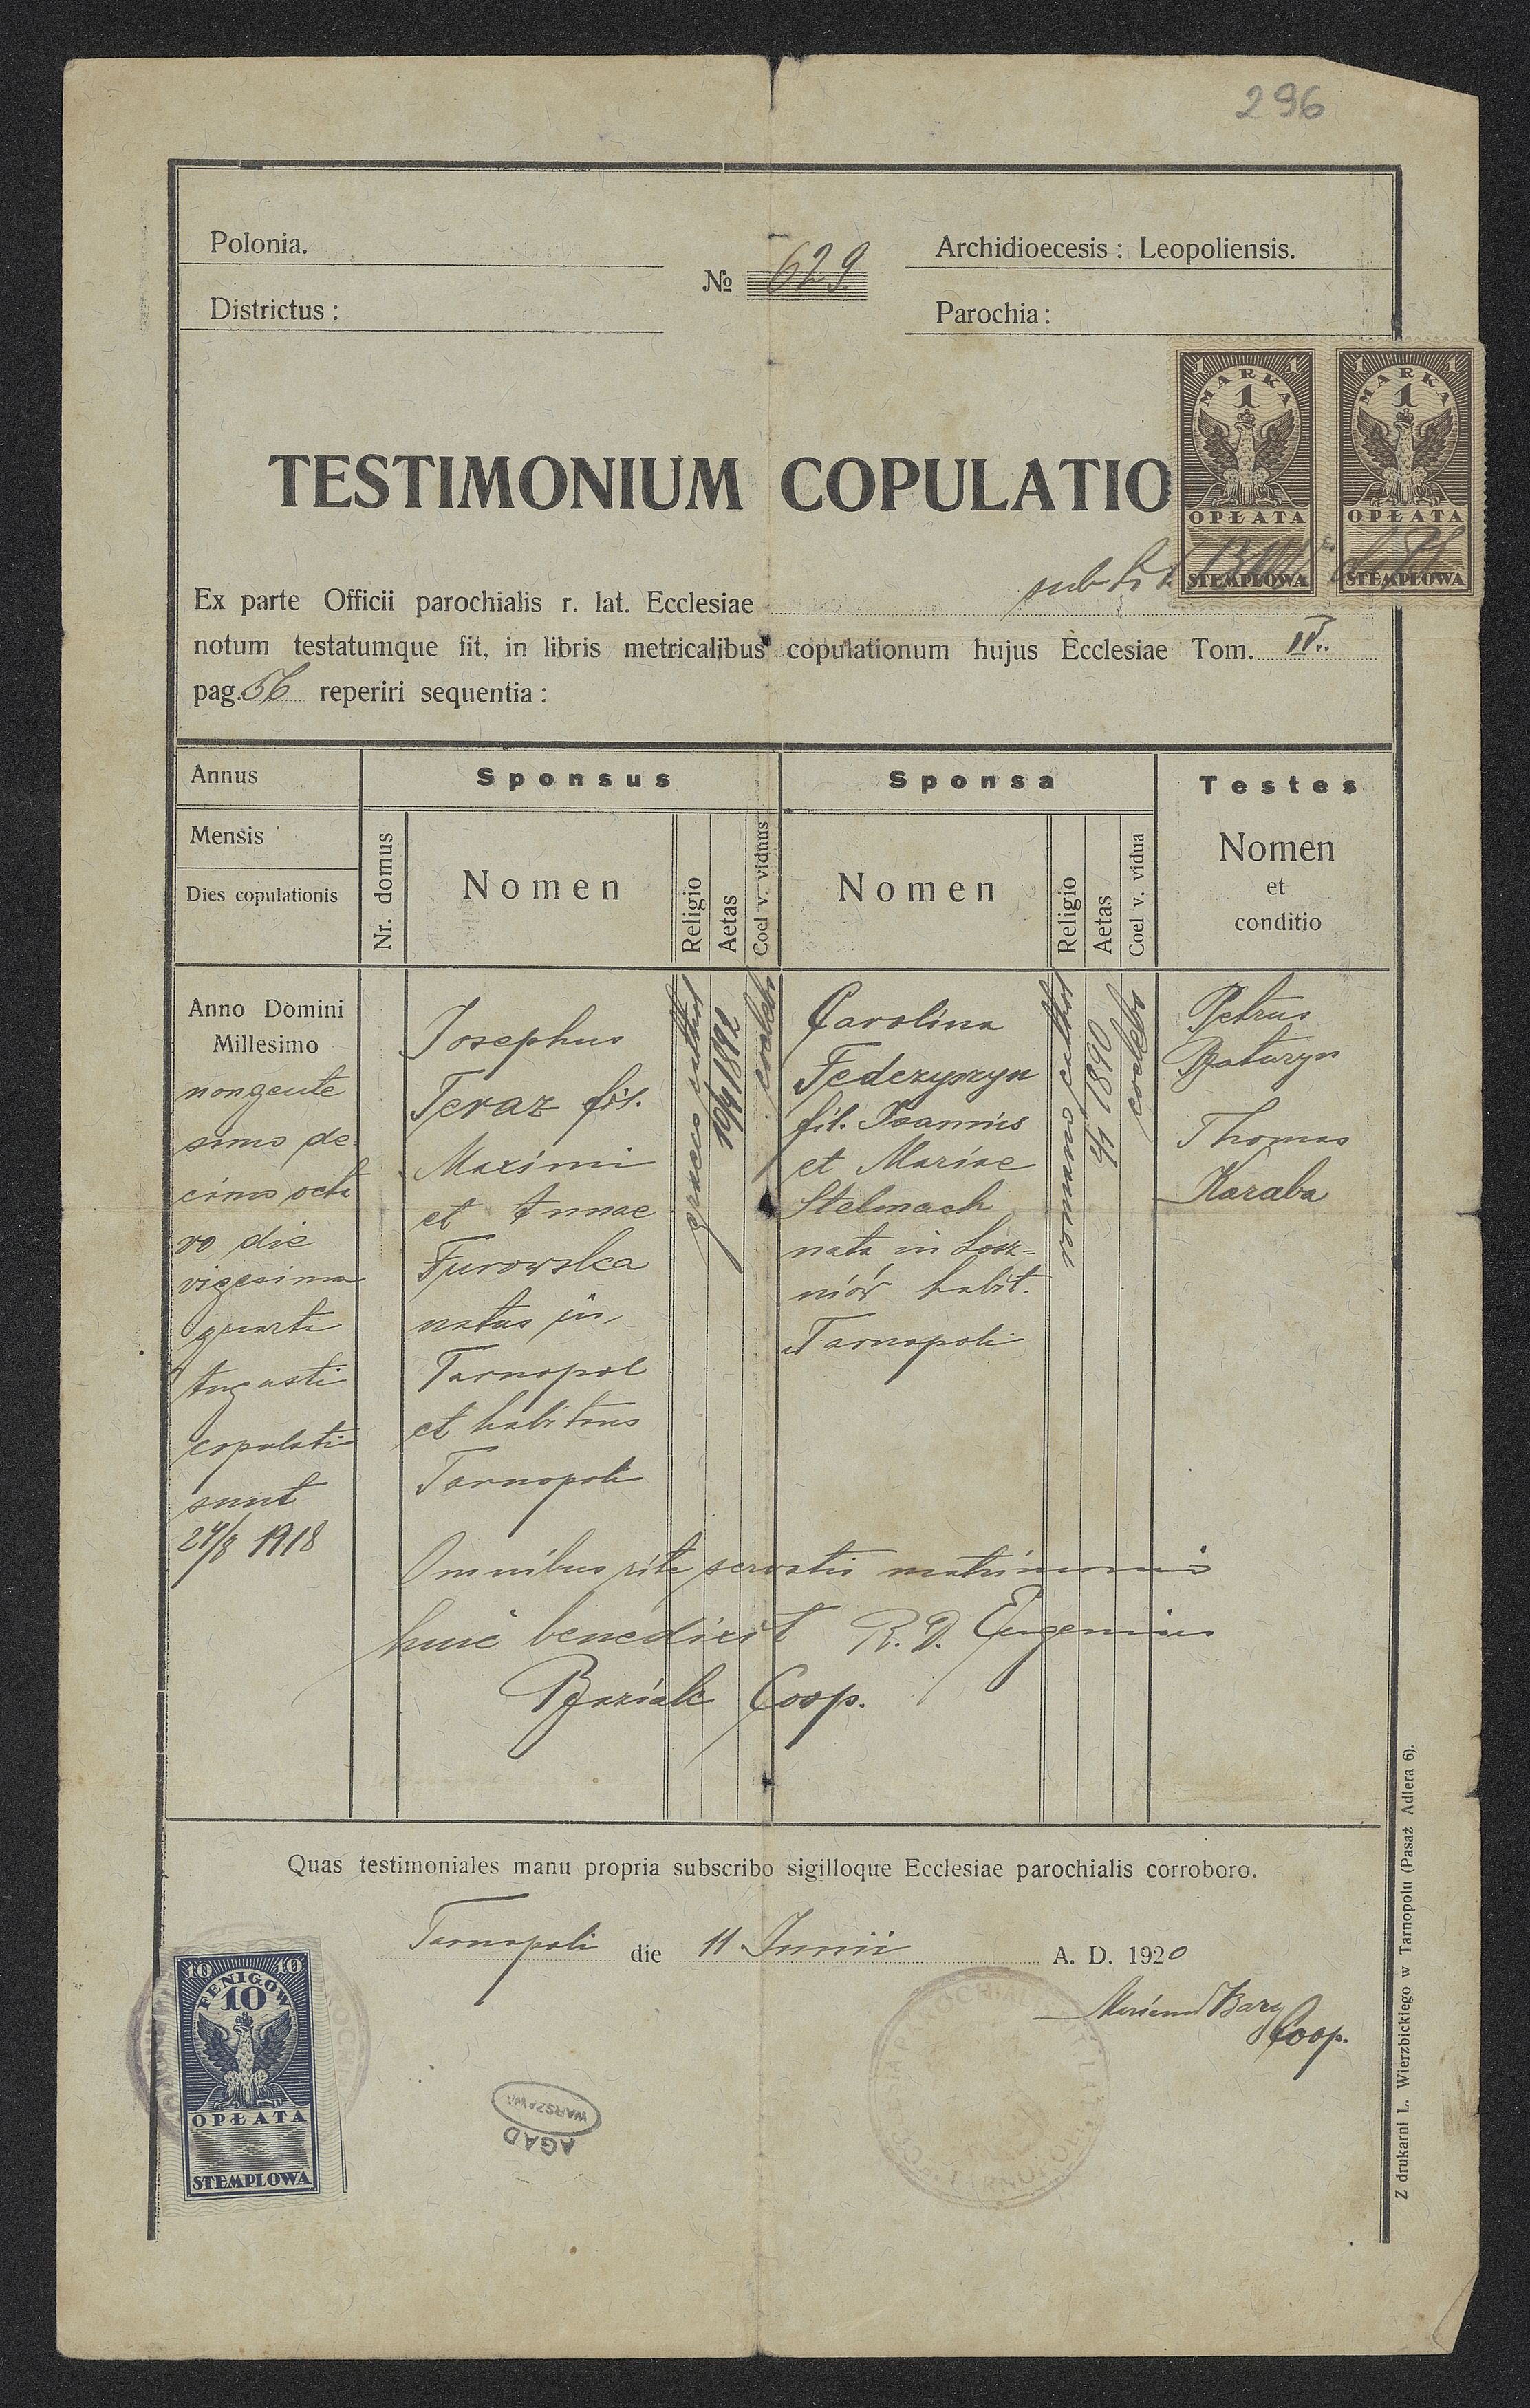 296
Polonia.
№ 629.
Archidioecesis : Leopoliensis.
Districtus :
Parochia :
1 1
MARKA
1
OPŁATA
STEMPLOWA
1 1
MARKA
1
OPŁATA
STEMPLOWA
TESTIMONIUM COPULATIO
Ex parte Officii parochialis r. lat. Ecclesiae sub tit.
notum testatumque fit, in libris metricalibus copulationum hujus Ecclesiae Tom. IV.
pag. 56 reperiri sequentia :
Annus
Mensis
Dies copulationis
Sponsus
Nr. domus
Nomen
Religio
Aetas
Coel v. viduus
Sponsa
Nomen
Religio
Aetas
Coel v. vidua
Testes
Nomen
et
conditio
Anno Domini
Millesimo
nongente
simo de
cimo octa
vo die
vigesima
quarta
Augusti
copulati
sunt
24/8 1918
Josephus
Teraz fil.
Maximi
et Annae
Furowska
natus in
Tarnopol
et habitans
Tarnopoli
graeco cathol
10/4 1892
coelebs
Carolina
Fedczyszyn
fil. Joannis
et Mariae
Stelmach
nata in Łosz-
niów habit.
Tarnopoli
romano cathol
1890
coelebs
Petrus
Baturyn
Thomas
Karaba
Omnibus rite servatis matrimonio
huic benedixit R. D. Eugenius
Baziak Coop.
Quas testimoniales manu propria subscribo sigilloque Ecclesiae parochialis corroboro.
Tarnopoli die 11 Junii A. D. 1920
Coop.
10 10
FENIGÓW
10
OPŁATA
STEMPLOWA
AGAD
WARSZAWA
Z drukarni L. Wierzbickiego w Tarnopolu (Pasaż Adlera 6).